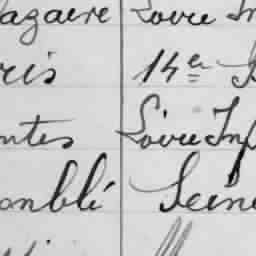 azaire Loire In
ris 14e
ntes Loire Inf
omblé Seine